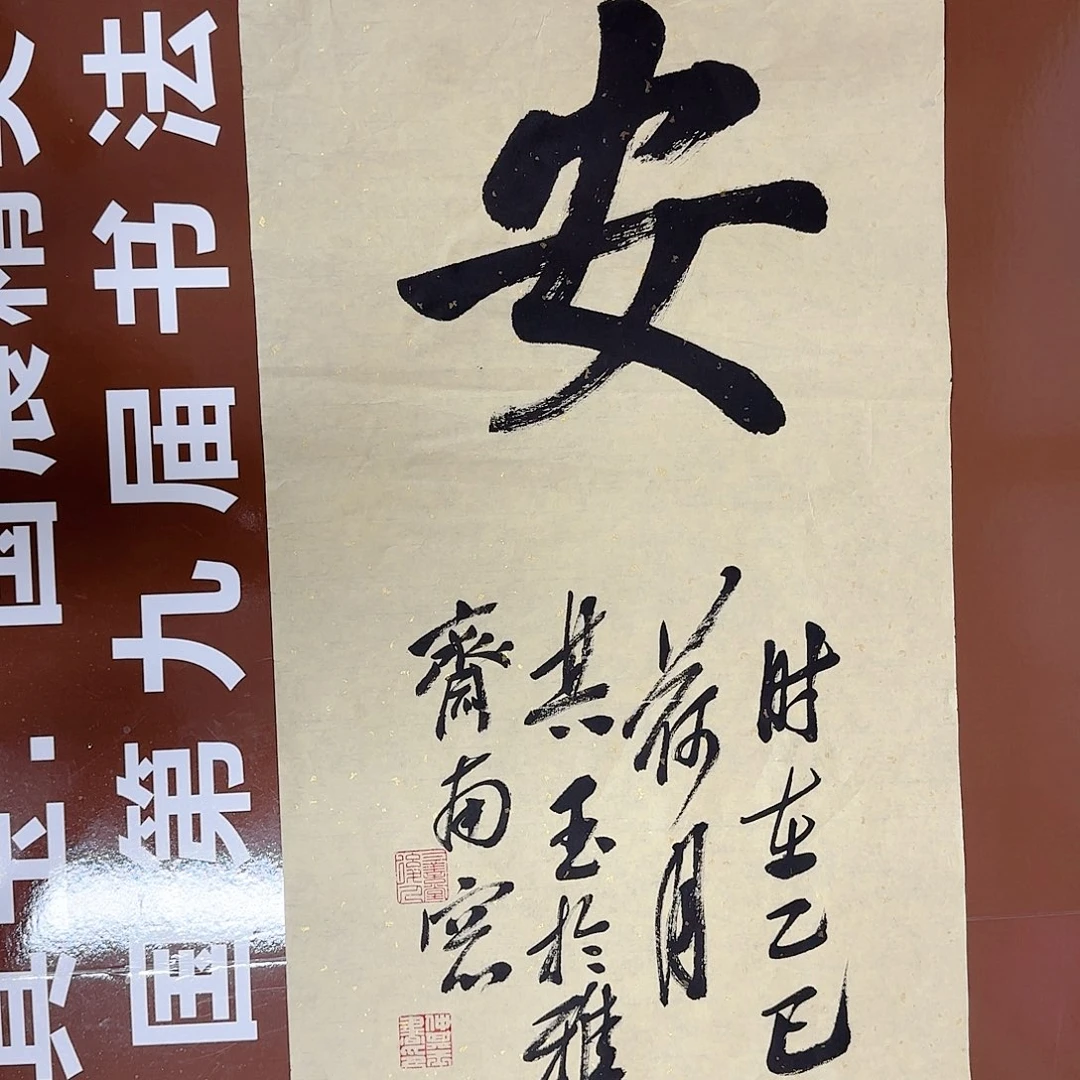 安
时在乙巳
荷月
其玉於雅
齋南窓
国展精
国第九届书法